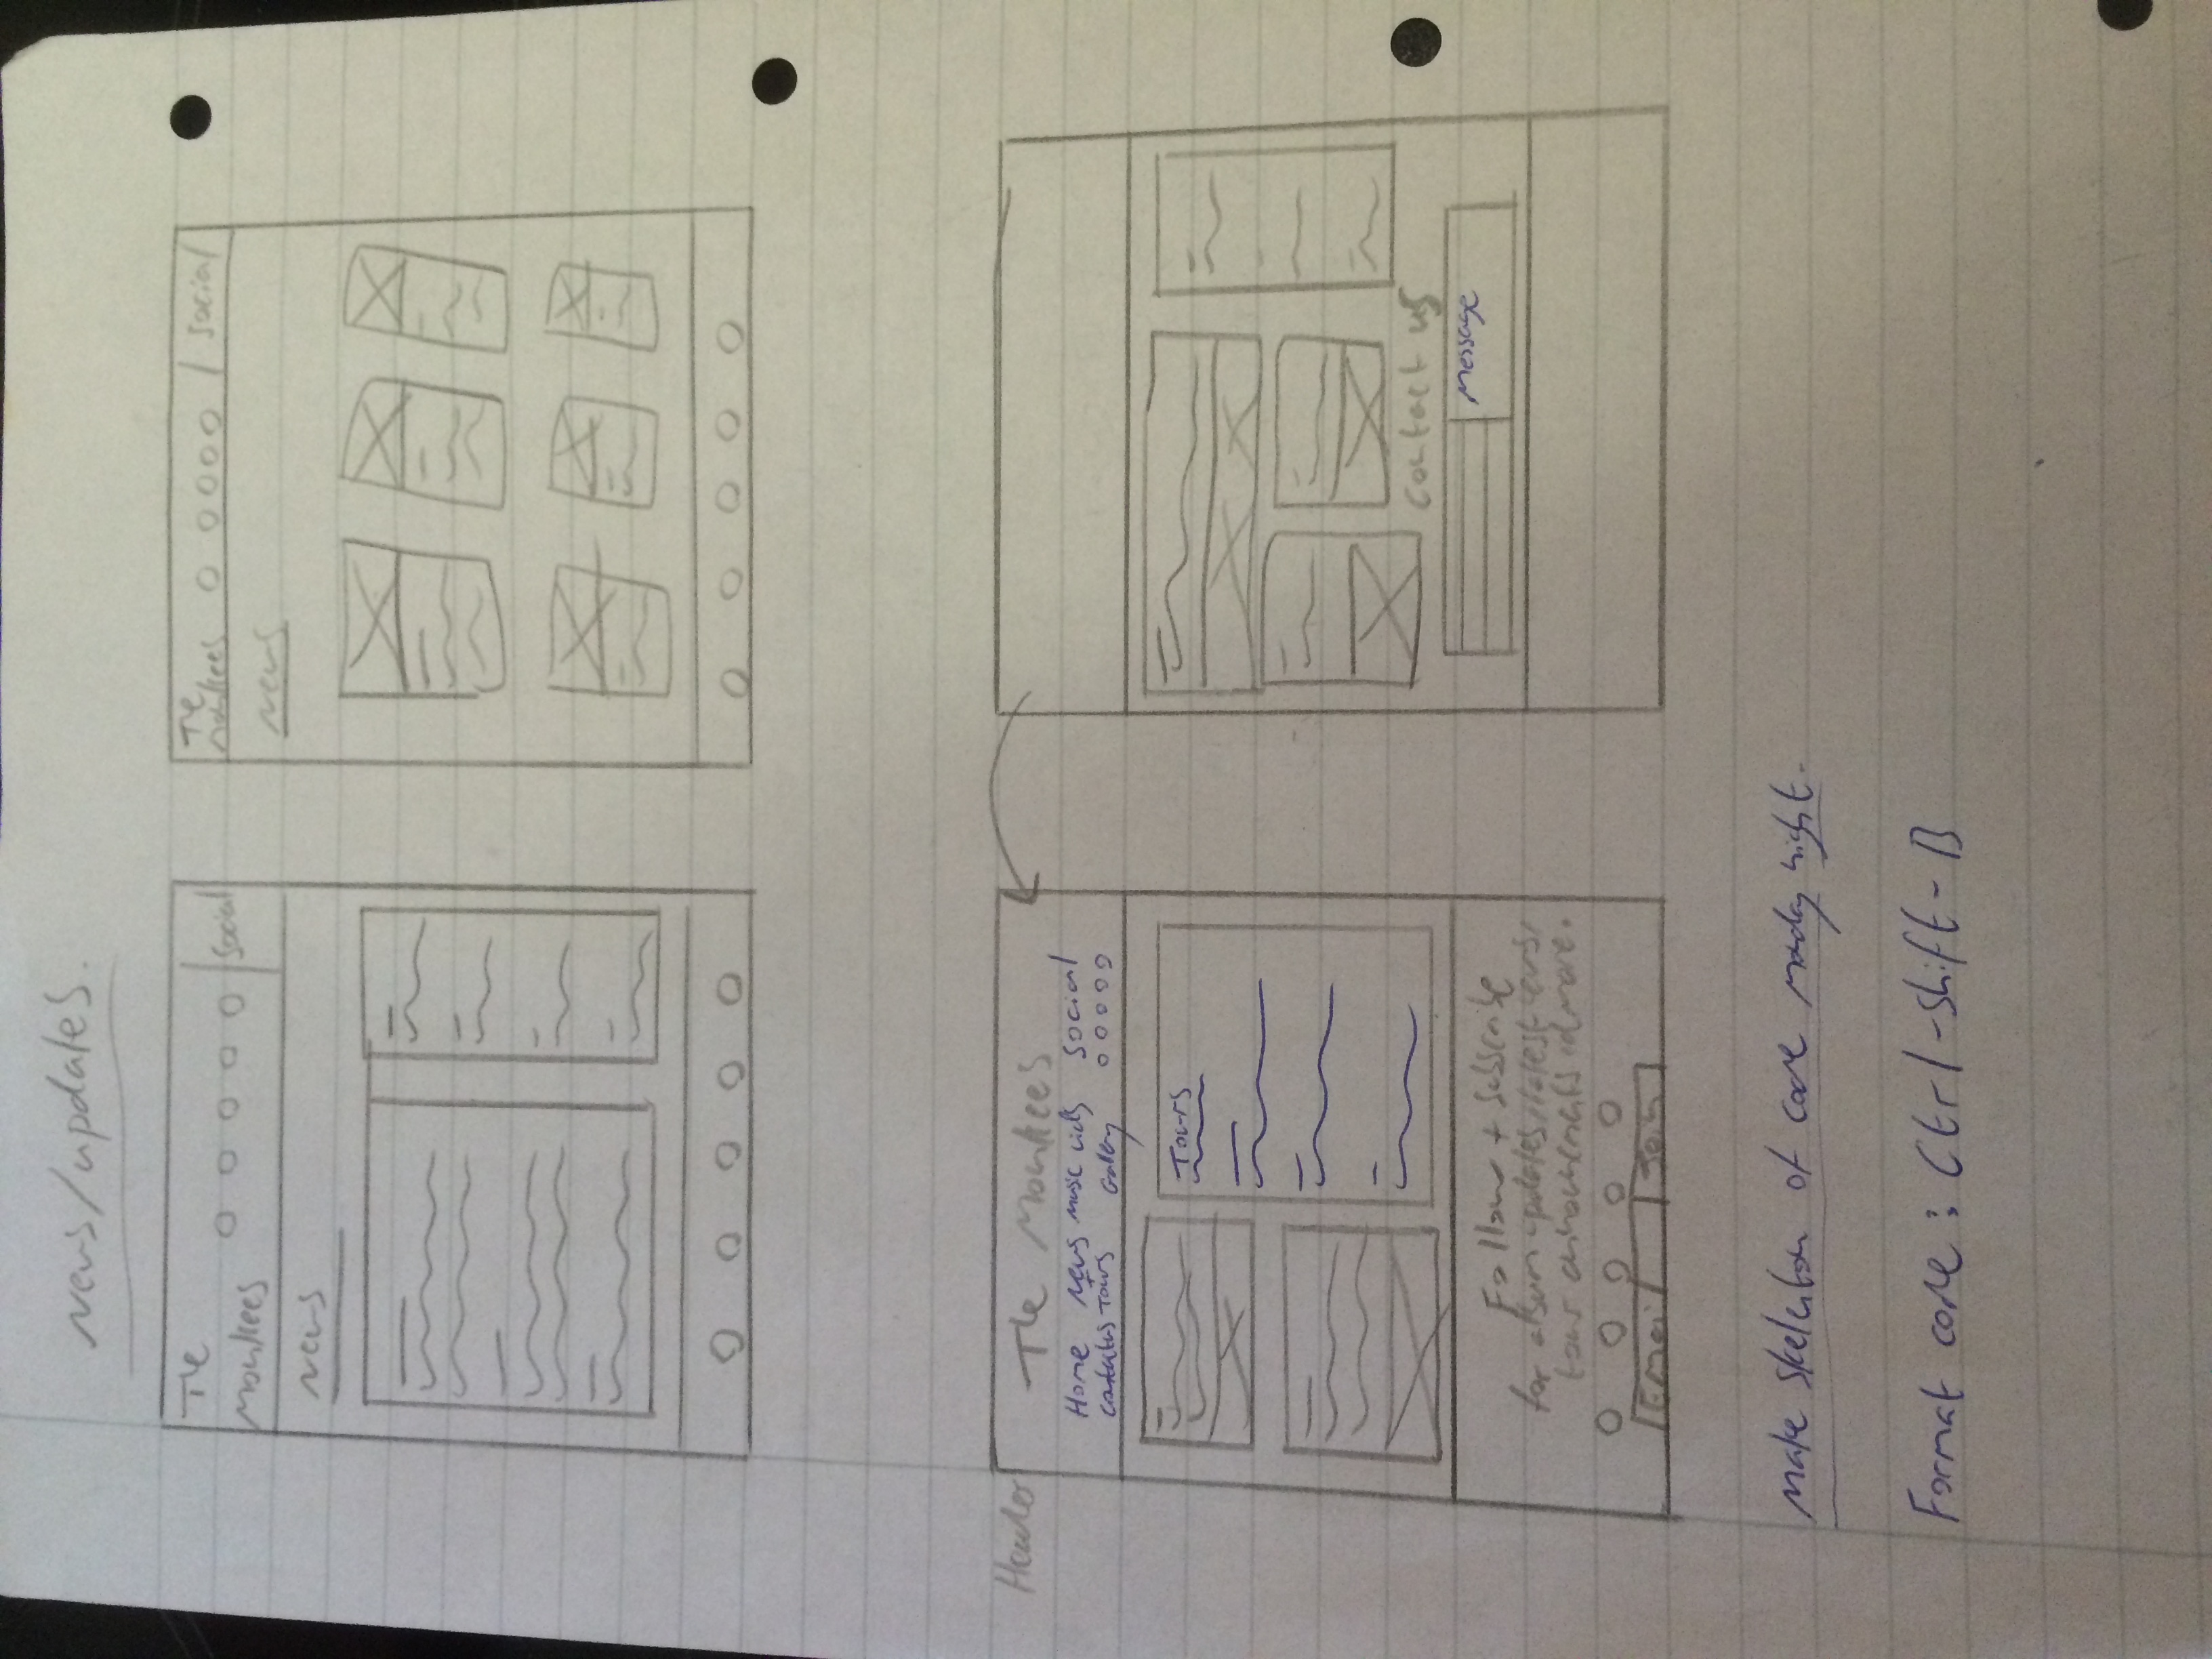 News/updates.
The
Monkees
social
News
The
Monkees
social
News
Header
The Monkees
Home news music vids Social
+
contact us Tours Gallery
Tours
Follow + Subscribe
for album updates, latest news,
tour announcements and more.
Email
Join
contact us
message
make skeleton of core monday night.
Format core: Ctrl-Shift-B